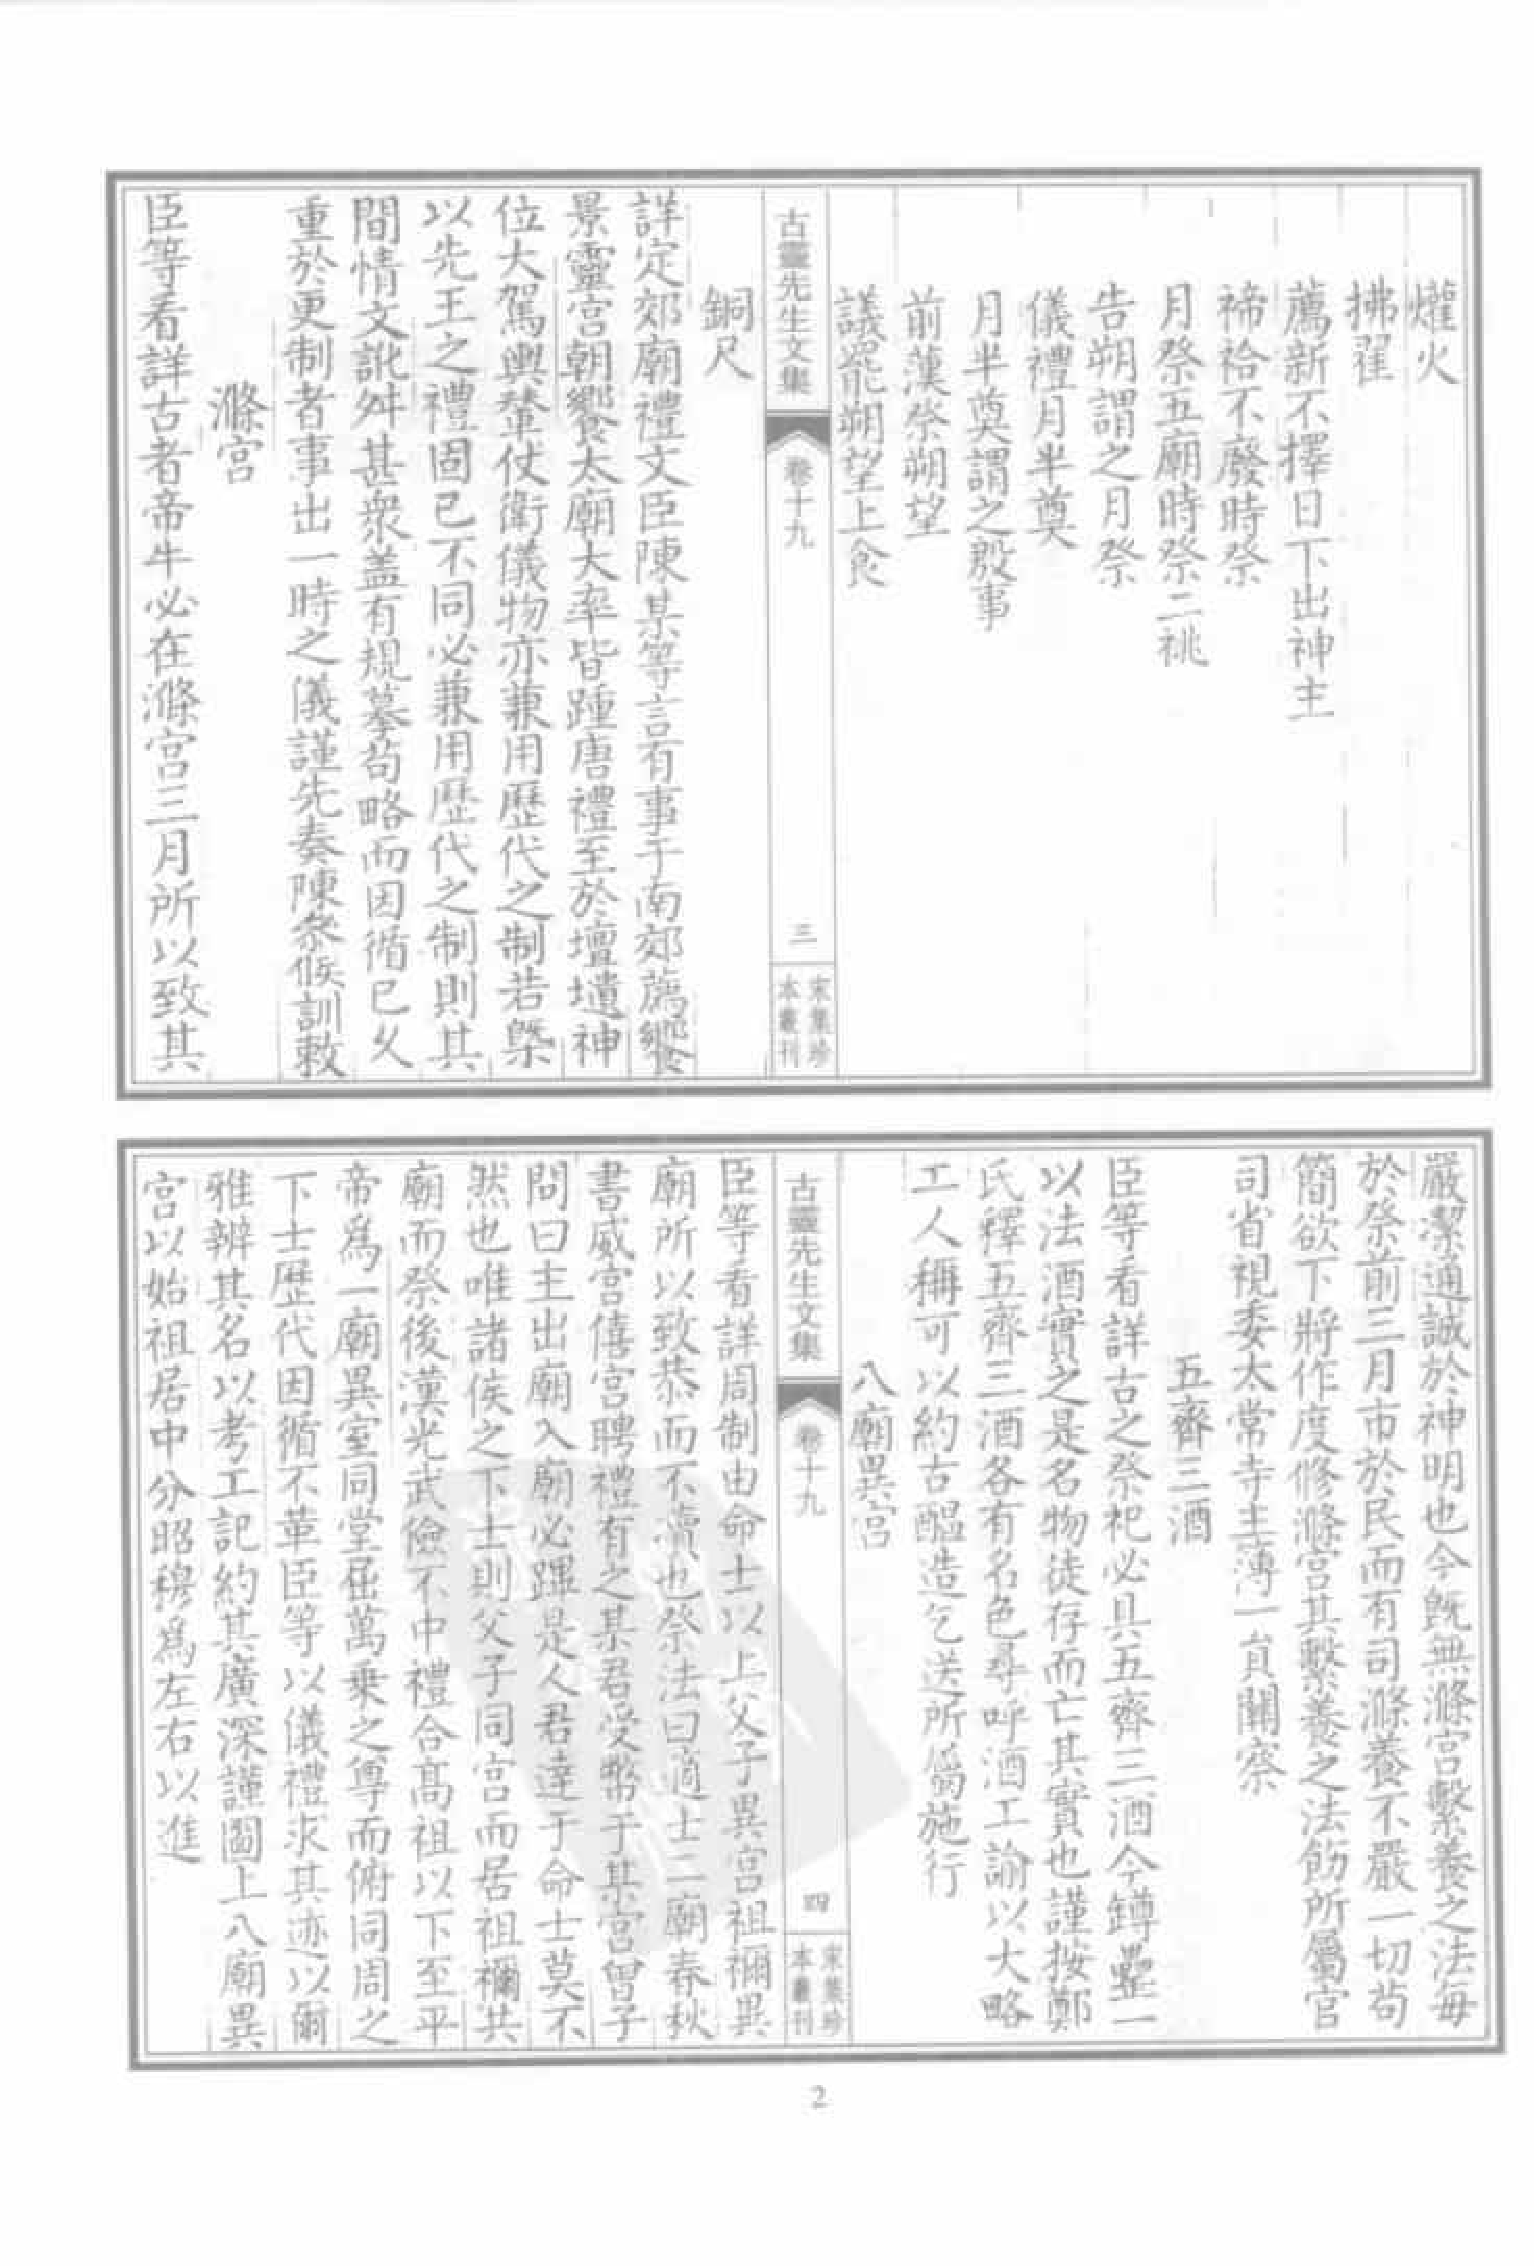 爟火
拂翟
薦新不擇日下出神主
禘祫不廢時祭
月祭五廟時祭二祧
告朔謂之月祭
儀禮月半奠
月半奠謂之殷事
前漢祭朔望
議罷朔望上食
古靈先生文集
卷十九
三
宋集珍
本叢刊
銅尺
詳定郊廟禮文臣陳某等言有事于南郊薦饗
景靈宮朝饗太廟大率皆踵唐禮至於壇壝神
位大駕輿輦仗衛儀物亦兼用歷代之制若槩
以先王之禮固已不同必兼用歷代之制則其
間情文訛舛甚衆盖有規摹苟略而因循已乆
重於更制者事出一時之儀謹先奏陳叅候訓敕
滌宮
臣等看詳古者帝牛必在滌宮三月所以致其
嚴潔通誠於神明也今既無滌宮繫養之法每
於祭前三月市於民而有司滌養不嚴一切苟
簡欲下將作度修滌宮其繫養之法飭所屬官
司省視委太常寺主簿一員關察
五齊三酒
臣等看詳古之祭祀必具五齊三酒今罇罍一
以法酒實之是名物徒存而亡其實也謹按鄭
氏釋五齊三酒各有名色尋呼酒工諭以大略
工人稱可以約古醖造乞送所屬施行
八廟異宮
古靈先生文集
卷十九
四
宋集珍
本叢刊
臣等看詳周制由命士以上父子異宮祖禰異
廟所以致恭而不瀆也祭法曰適士二廟春秋
書威宮僖宮聘禮有之某君受幣于某宮曾子
問曰主出廟入廟必蹕是人君達于命士莫不
然也唯諸侯之下士則父子同宮而居祖禰共
廟而祭後漢光武儉不中禮合髙祖以下至平
帝爲一廟異室同堂屈萬乗之尊而俯同周之
下士歷代因循不革臣等以儀禮求其迹以爾
雅辨其名以考工記約其廣深謹圖上八廟異
宮以始祖居中分昭穆爲左右以進
2